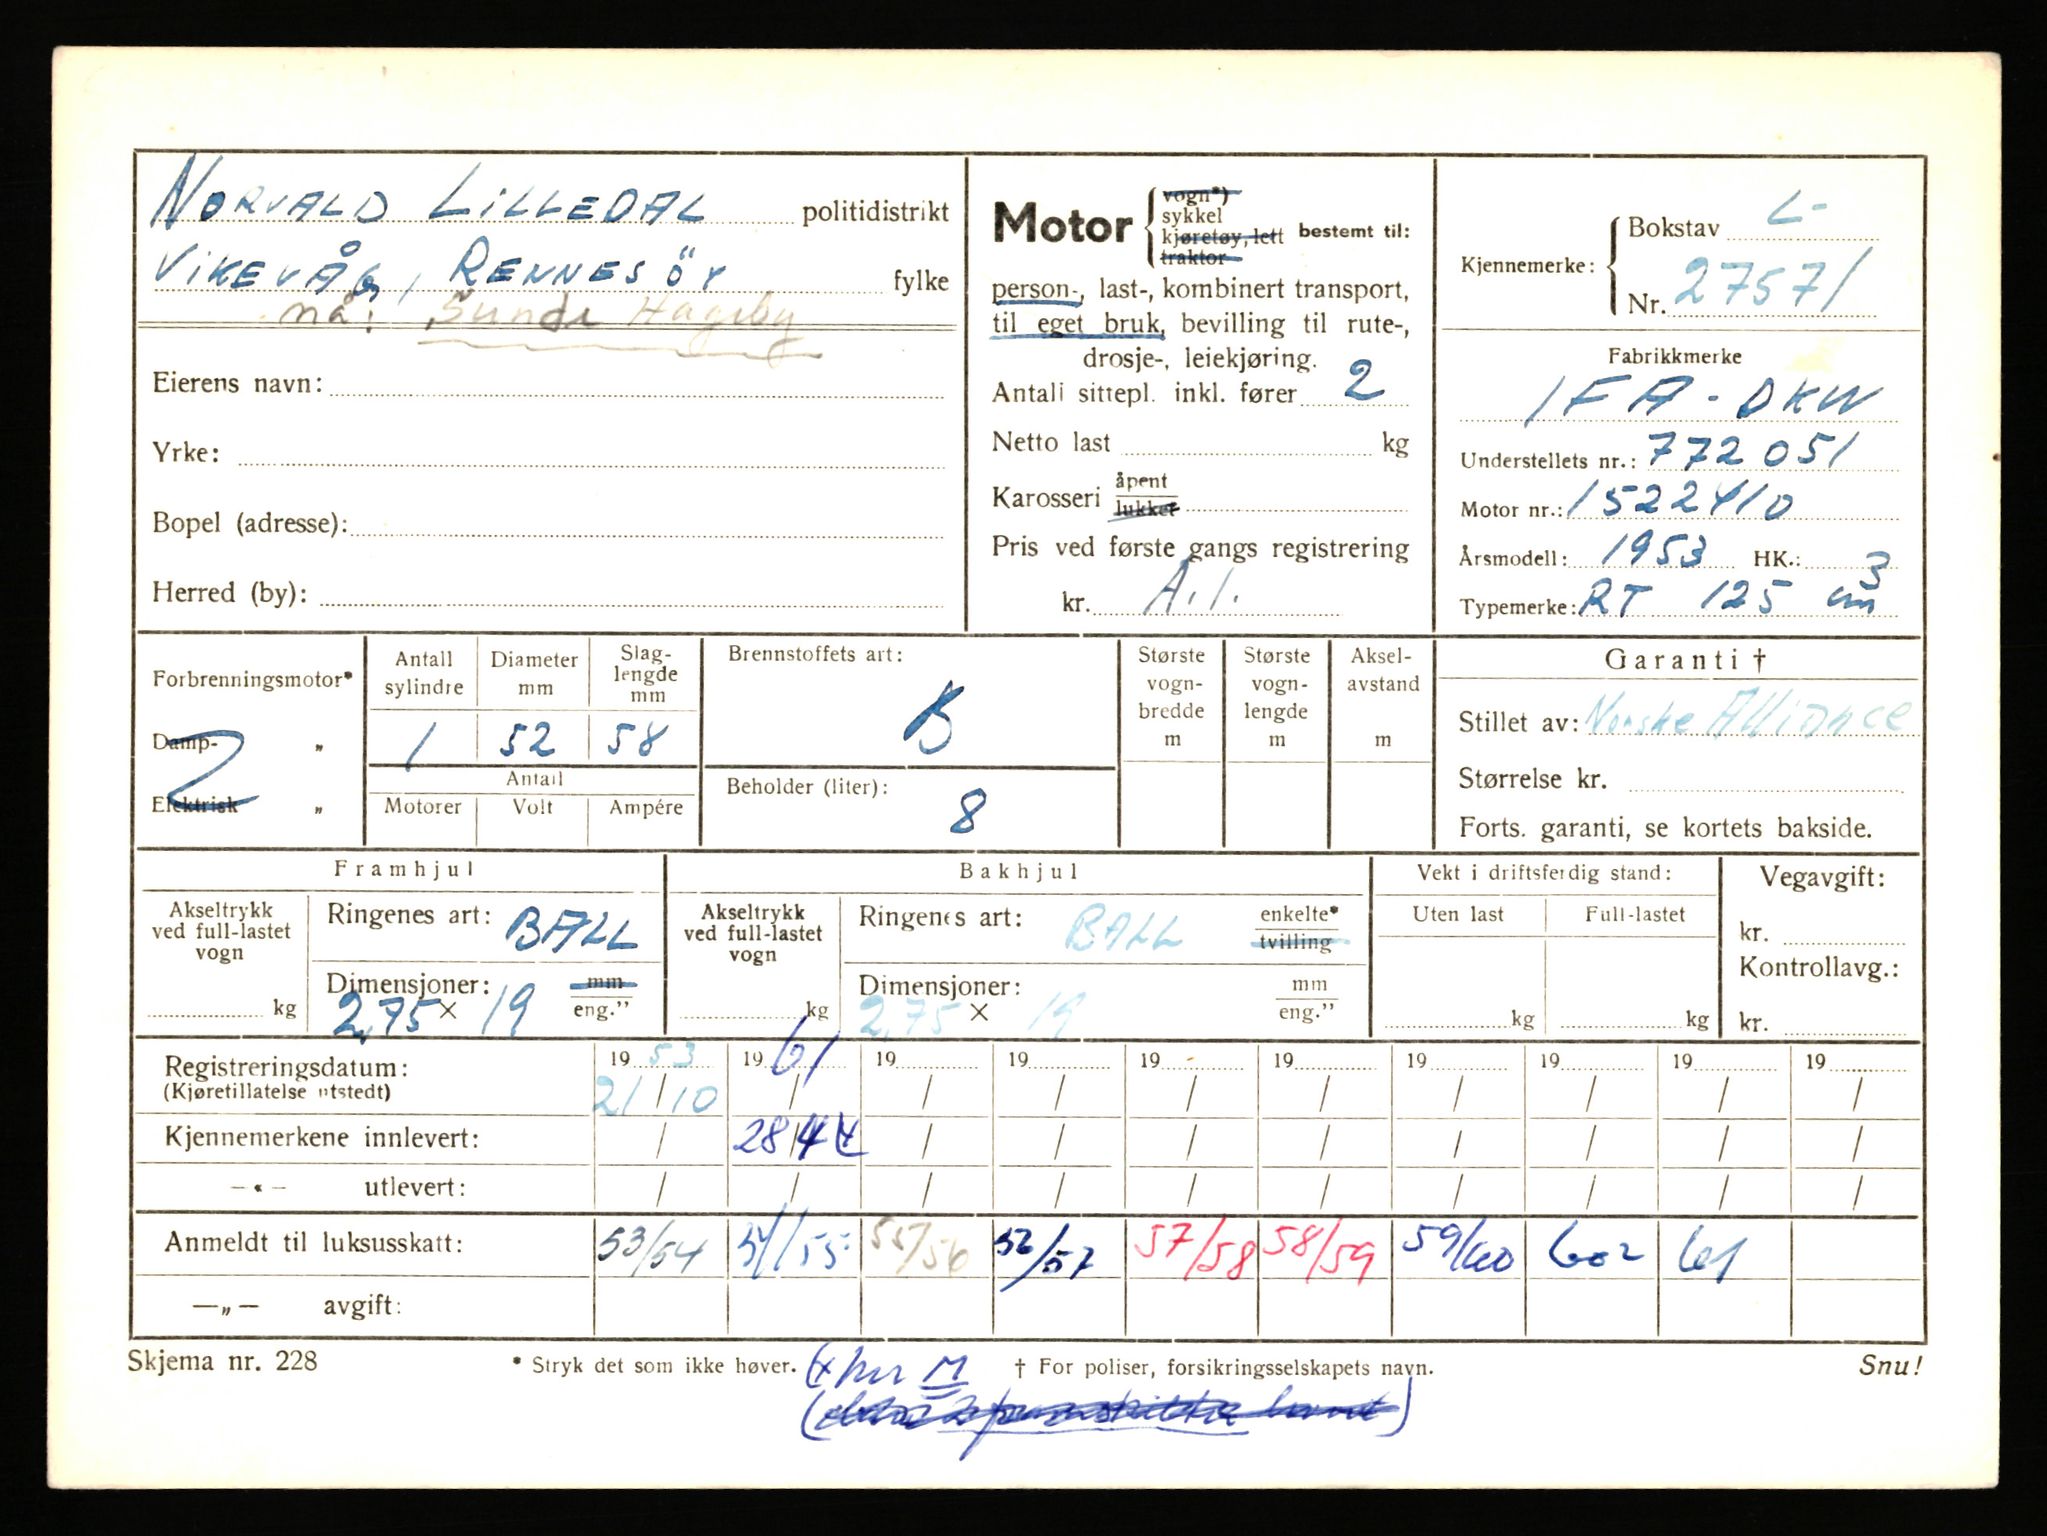 NORVALD LILLEDAL politidistrikt
VIKEVÅG, RENNESÖY fylke
nå: Sunde Hageby
Eierens navn:
Yrke:
Bopel (adresse):
Herred (by):
Motor { vogn*) sykkel kjøretøy, lett traktor bestemt til:
person-, last-, kombinert transport,
til eget bruk, bevilling til rute-,
drosje-, leiekjøring.
Antall sittepl. inkl. fører 2
Netto last kg
Karosseri åpent lukket
Pris ved første gangs registrering
kr. A.1.
Kjennemerke: { Bokstav L-
Nr. 27571
Fabrikkmerke
IFA - DKW
Understellets nr.: 772051
Motor nr.: 1522410
Årsmodell: 1953 HK.: 3
Typemerke: RT 125 cm
Forbrenningsmotor*
2
Damp- „
Elektrisk „
Antall sylindre
1
Diameter mm
52
Slag-lengde mm
58
Antall
Motorer Volt Ampére
Brennstoffets art:
B
Beholder (liter):
8
Største vogn-bredde m
Største vogn-lengde m
Aksel-avstand m
Garanti †
Stillet av: Norske Alliance
Størrelse kr.
Forts. garanti, se kortets bakside.
Framhjul
Akseltrykk ved full-lastet vogn
kg
Ringenes art: BALL
Dimensjoner: mm
2,75 x 19 eng."
Bakhjul
Akseltrykk ved full-lastet vogn
kg
Ringenes art: BALL enkelte* tvilling
Dimensjoner: mm
2,75 x 19 eng."
Vekt i driftsferdig stand:
Uten last Full-lastet
kg kg
Vegavgift:
kr.
Kontrollavg.:
kr.
Registreringsdatum: 1953 1961 19 19 19 19 19 19 19 19
(Kjøretillatelse utstedt) 21/10 / / / / / / / / /
Kjennemerkene innlevert: / 28/4 / / / / / / / /
—«— utlevert: / / / / / / / / / /
Anmeldt til luksusskatt: 53/54 54/55 55/56 56/57 57/58 58/59 59/60 602 61
—„— avgift:
Skjema nr. 228 * Stryk det som ikke høver. (x hos M † For poliser, forsikringsselskapets navn. Snu!